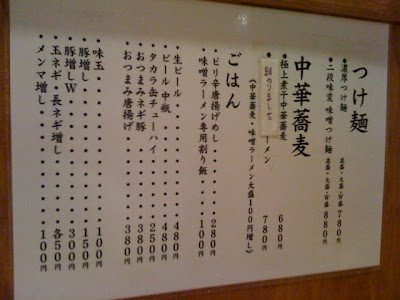 つけ麺
●濃厚つけ麺 並盛・大盛・特盛 780円
●二段味変 味噌つけ麺 並盛・大盛・特盛 880円
中華蕎麦
●極上煮干中華蕎麦 680円
ーメン 780円
(中華蕎麦・味噌ラーメン大盛100円増し)
ごはん
●ピリ辛唐揚げめし・・・280円
●味噌ラーメン専用割り飯・・・100円
●生ビール・・・480円
●ビール 中瓶・・・480円
●タカラ缶チューハイ・・・250円
●おつまみネギ豚・・・380円
●おつまみ唐揚げ・・・380円
●味玉・・・100円
●豚増し・・・150円
●豚増しW・・・300円
●玉ネギ・長ネギ増し・・・各50円
●メンマ増し・・・100円